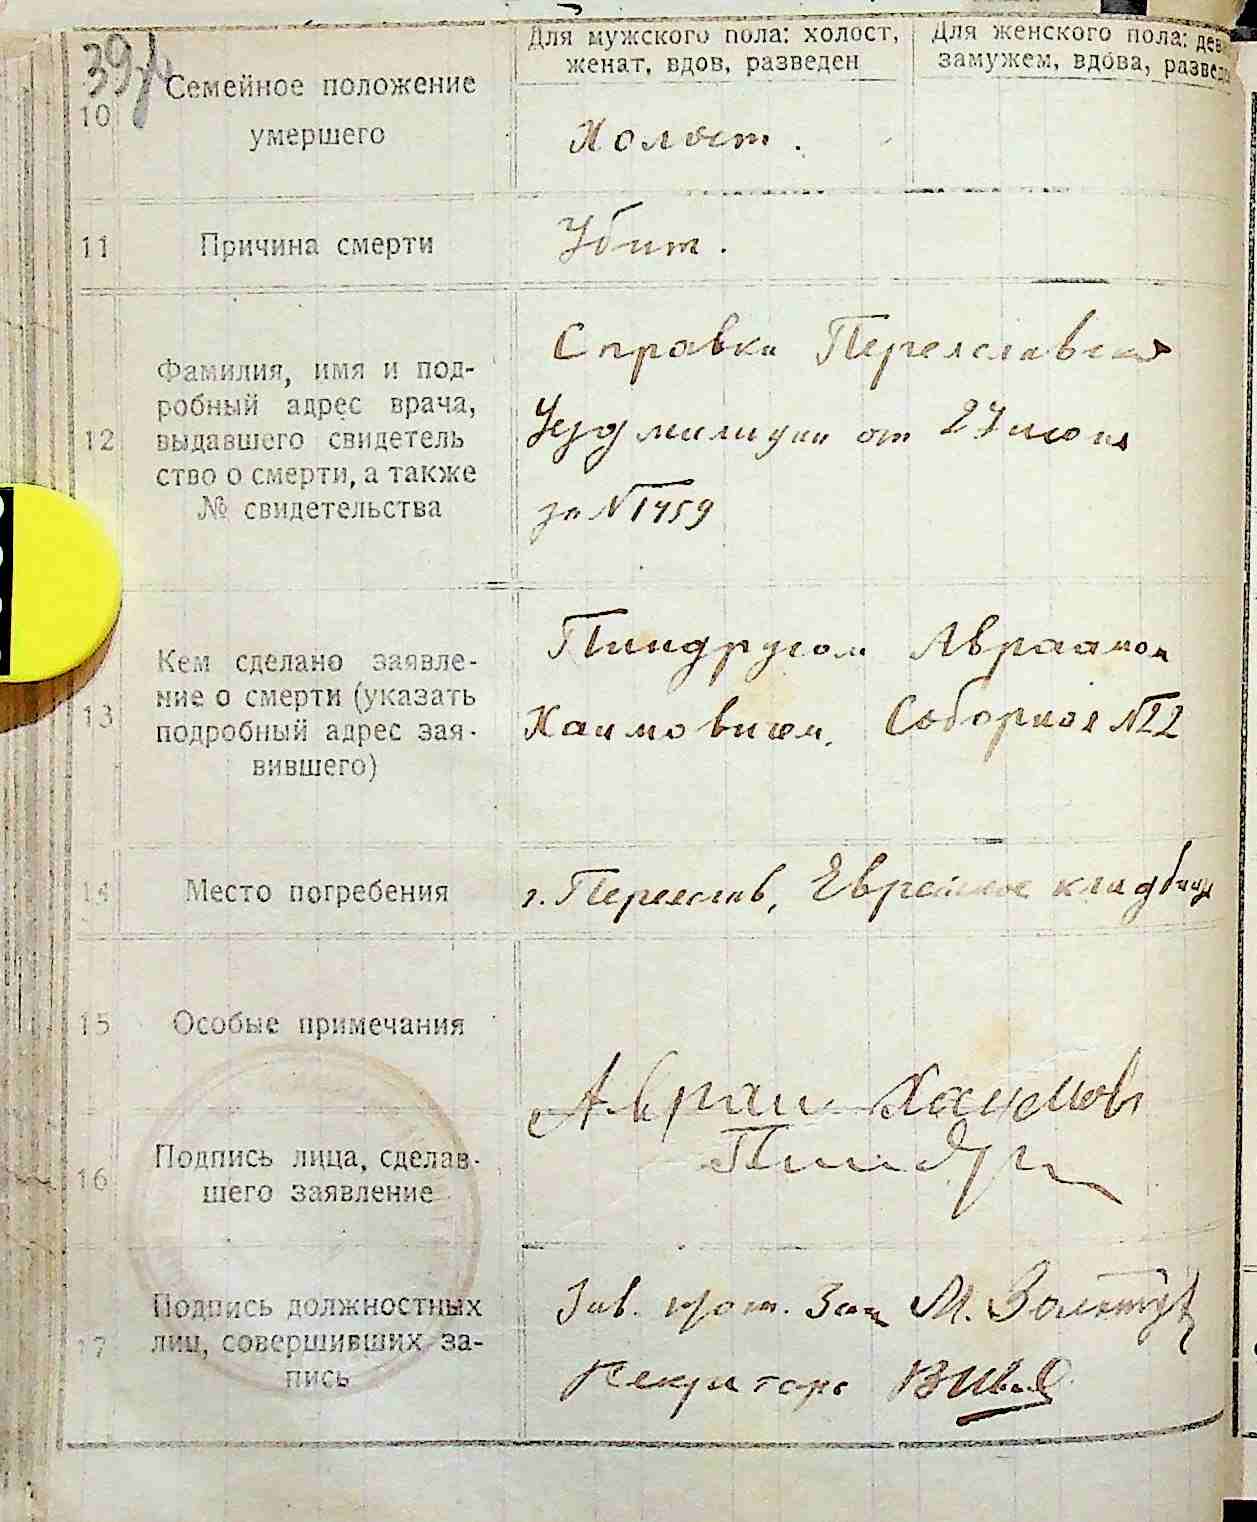 39
Для мужского пола: холост,
женат, вдов, разведен
Для женского пола: дев
замужем, вдова, развед
10
Семейное положение
умершего
Холост.
11
Причина смерти
Убит.
12
Фамилия, имя и под-
робный адрес врача,
выдавшего свидетель
ство о смерти, а также
№ свидетельства
Справка Переяславско
Уезд милиции от 27 июня
за № 1459
13
Кем сделано заявле-
ние о смерти (указать
подробный адрес зая-
вившего)
Пиндрусом Авраамом
Хаимовичем. Соборная № 22
14
Место погребения
г. Переяслав, Еврейское кладбище
15
Особые примечания
16
Подпись лица, сделав-
шего заявление
Авраам Хаимов
Пиндру
17
Подпись должностных
лиц, совершивших за-
пись
Зав. М.
Секретарь